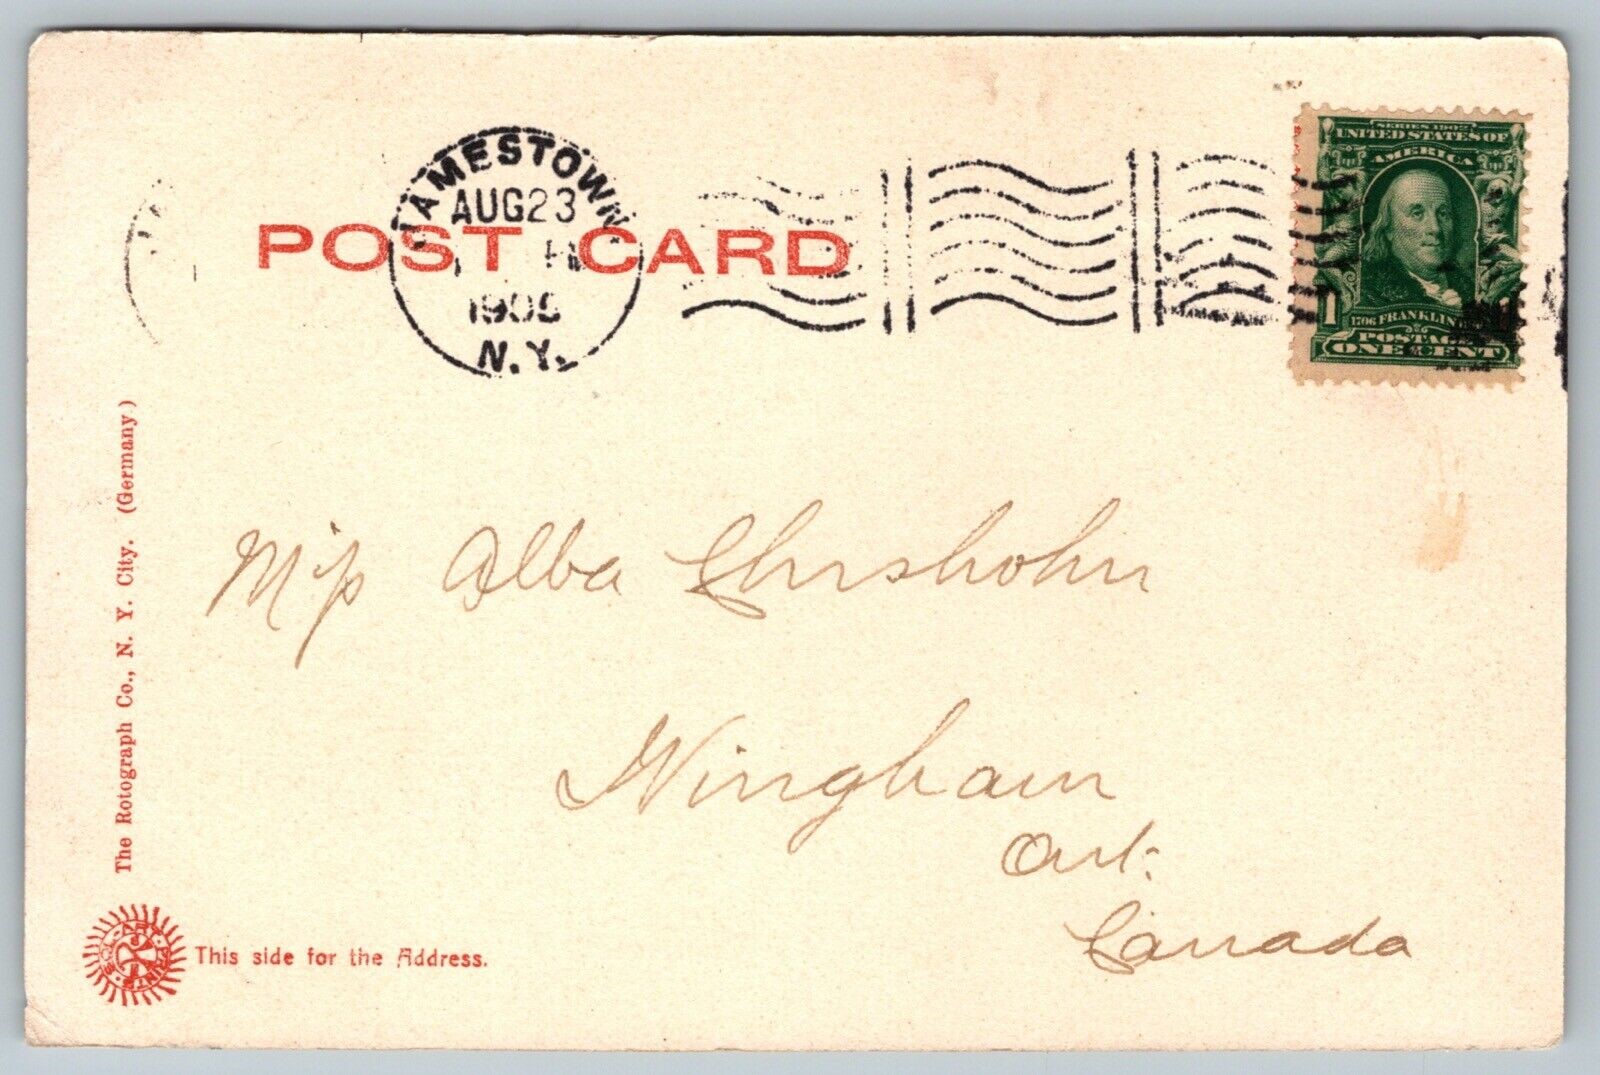 JAMESTOWN
AUG 23
1905
N.Y.
POST CARD
SERIES 1902
UNITED STATES OF
AMERICA
1
1706 FRANKLIN
POSTAGE
ONE CENT
Miss Alba Chrisholm
Wingham
Ont.
Canada
The Rotograph Co., N. Y. City. (Germany.)
SOL-ART PRINTS
This side for the Address.